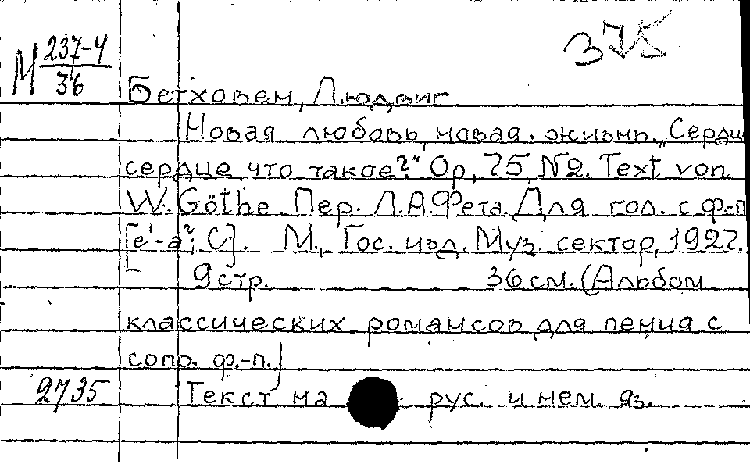 375
М 237-4
36
Бетховен, Людвиг
Новая любовь, новая жизнь. „Сердце
сердце что такое?" Op. 75 №2. Text von
W. Göthe. Пер. Л.А.Фета. Для гол. с ф-п
[e'-a²; C]. М., Гос. изд. Муз. сектор, 1927.
9 стр. 36 см. (Альбом
классических романсов для пения с
сопр. ф.-п.)
2735 Текст на рус. и нем. яз.